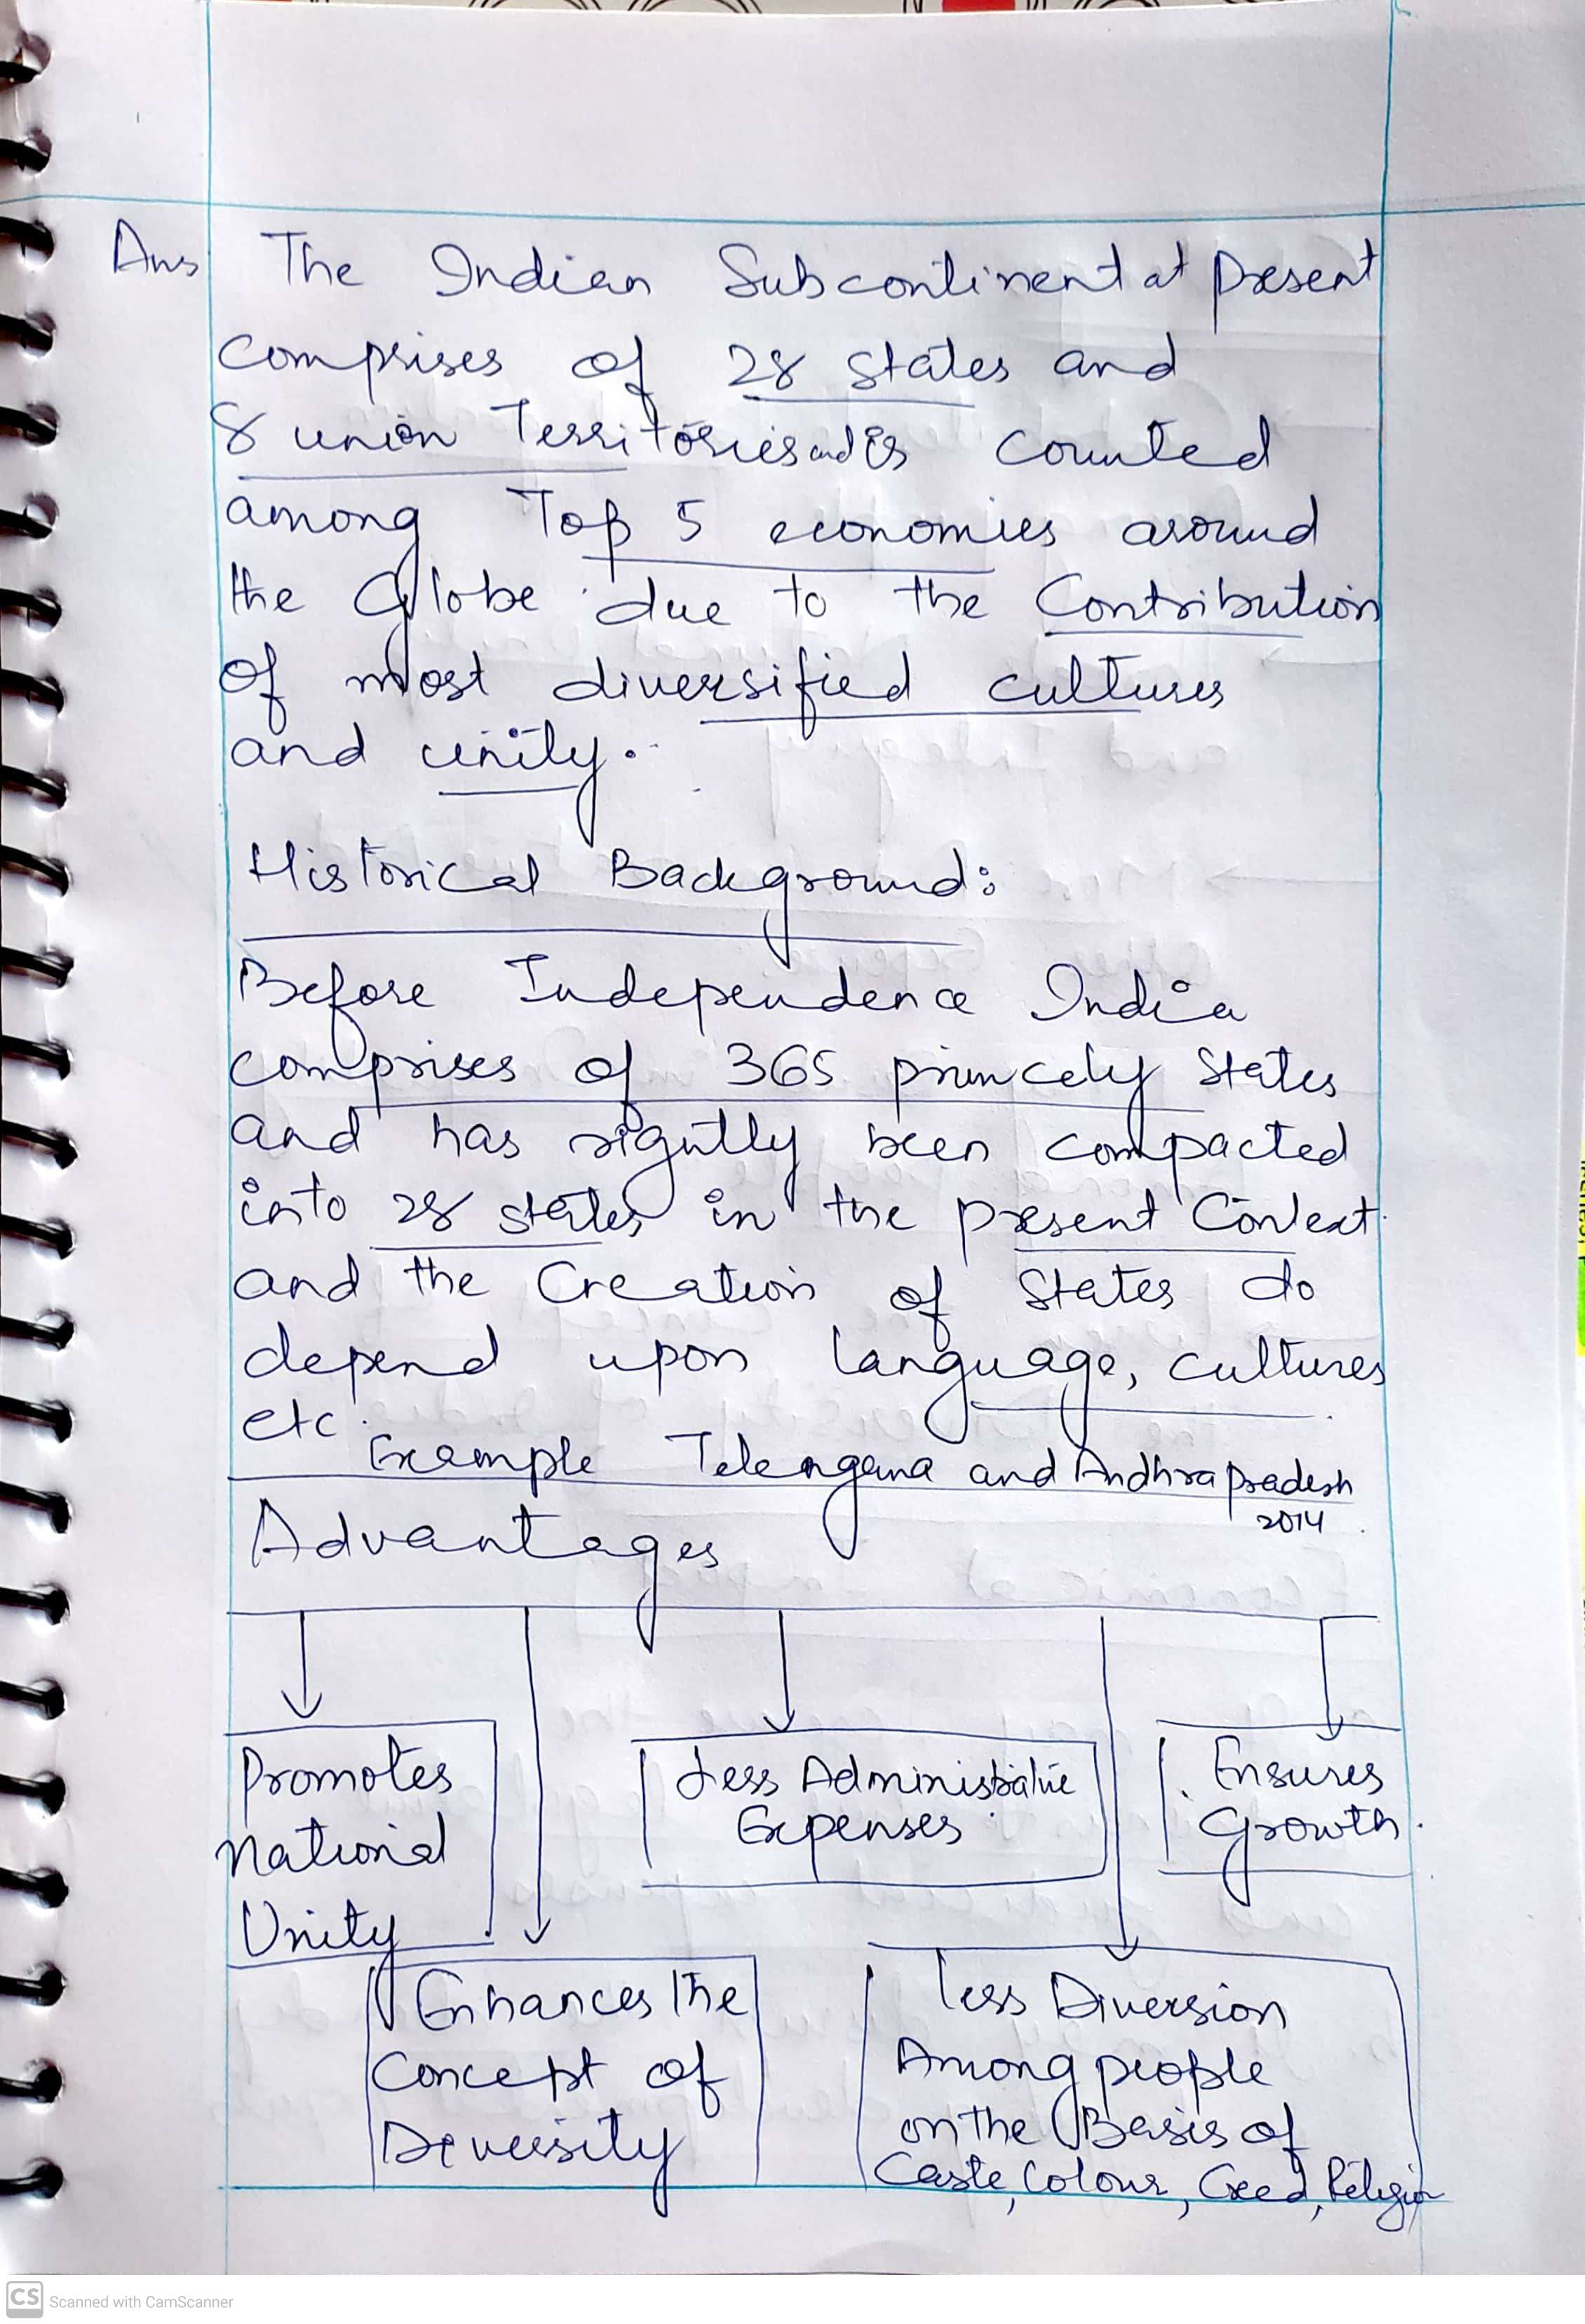 Ans The Indian Subcontinent at present
comprises of 28 states and
8 union Territories and is counted
among Top 5 economies around
the Globe due to the Contribution
of most diversified cultures
and unity.
Historical Background:
Before Independence India
comprises of 365 princely States
and has rightly been compacted
into 28 states in the present Context
and the Creation of States do
depend upon language, cultures
etc.
Example Telengana and Andhra pradesh
2014
Advantages
Promotes
National
Unity
Less Administrative
Expenses
Ensures
Growth.
Enhances The
Concept of
Diversity
Less Diversion
Among people
on the Basis of
Caste, Colour, Creed, Religion
CS Scanned with CamScanner